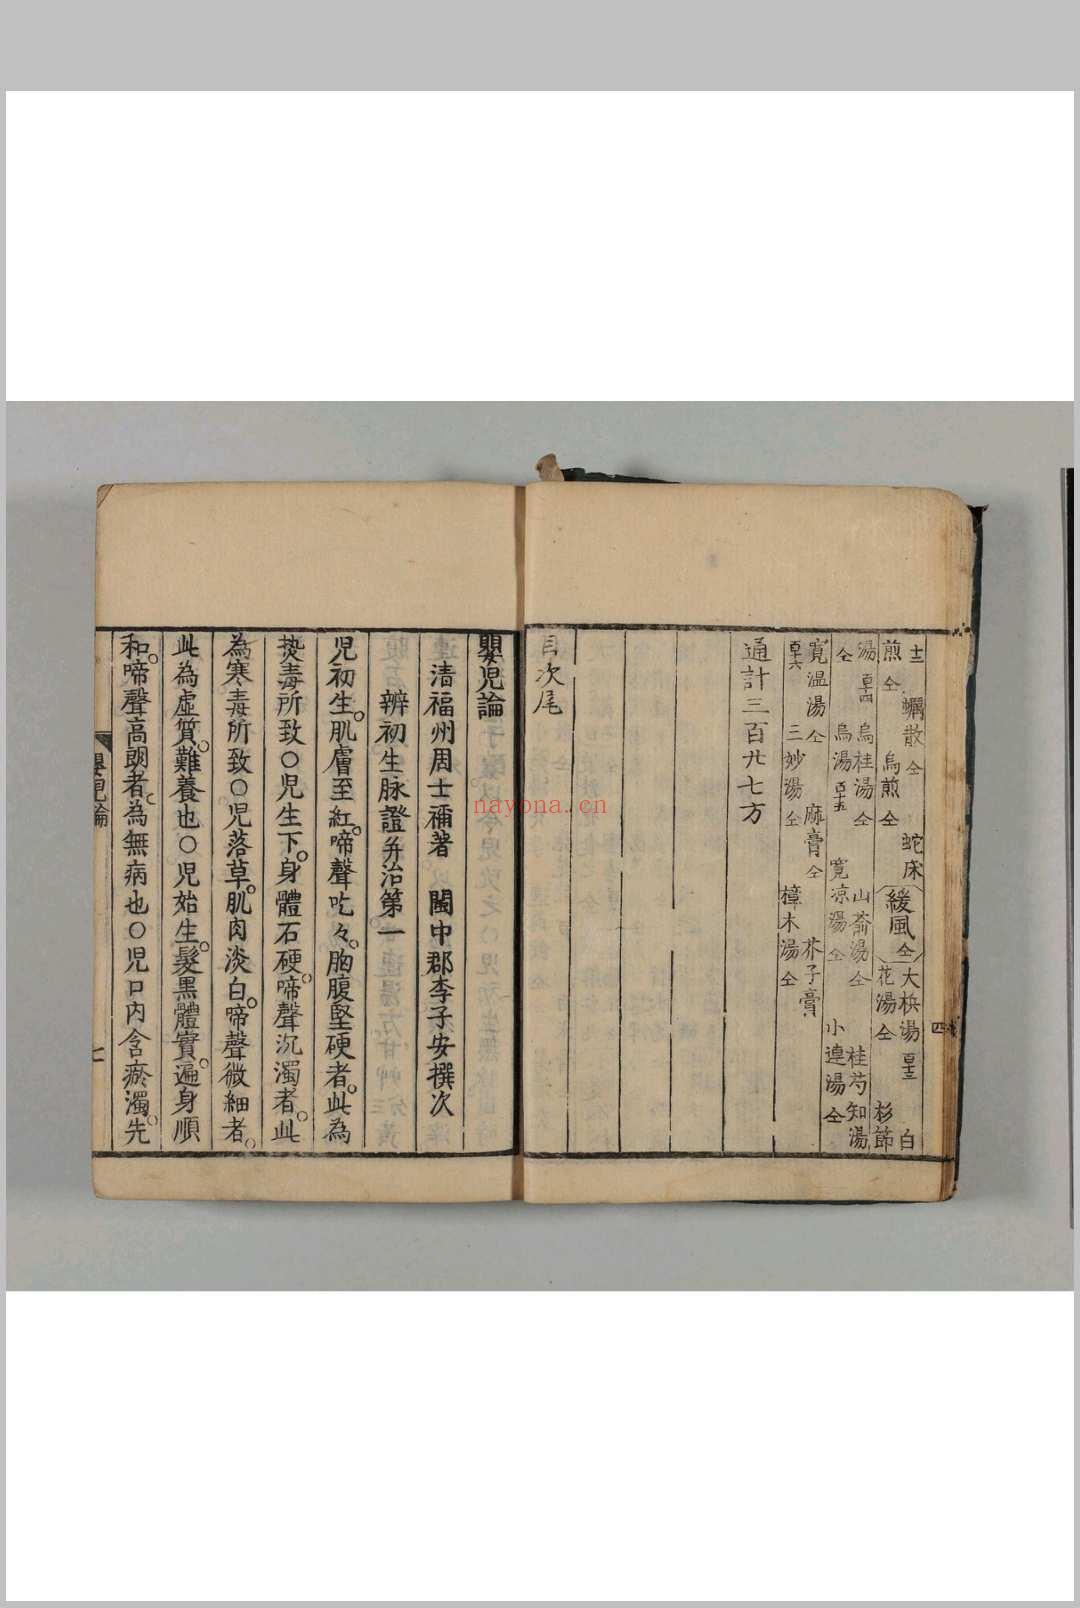 蠣散仝　蛇床　緩風仝　大梹湯　白
煎仝　烏煎仝　花湯仝　杉節
湯　烏桂湯仝　山斎湯仝　桂芍知湯
仝　烏湯　寛凉湯仝　小連湯仝
寛温湯仝　麻膏仝　芥子膏
三妙湯仝　樟木湯仝
通計三百廿七方
目次尾
四
嬰児論
清福州周士禰著　閩中郡李子安撰次
辨初生脉證并治第一
児初生。肌膚至紅。啼聲吃々。胸腹堅硬者。此為
熱毒所致○児生下。身體石硬。啼聲沉濁者。此
為寒毒所致○児落草。肌肉淡白。啼聲微細者。
此為虛質。難養也○児始生。髮黒體實。遍身順
和。啼聲高朗者。為無病也○児口内含瘀濁。先
嬰児論
nayona.cn